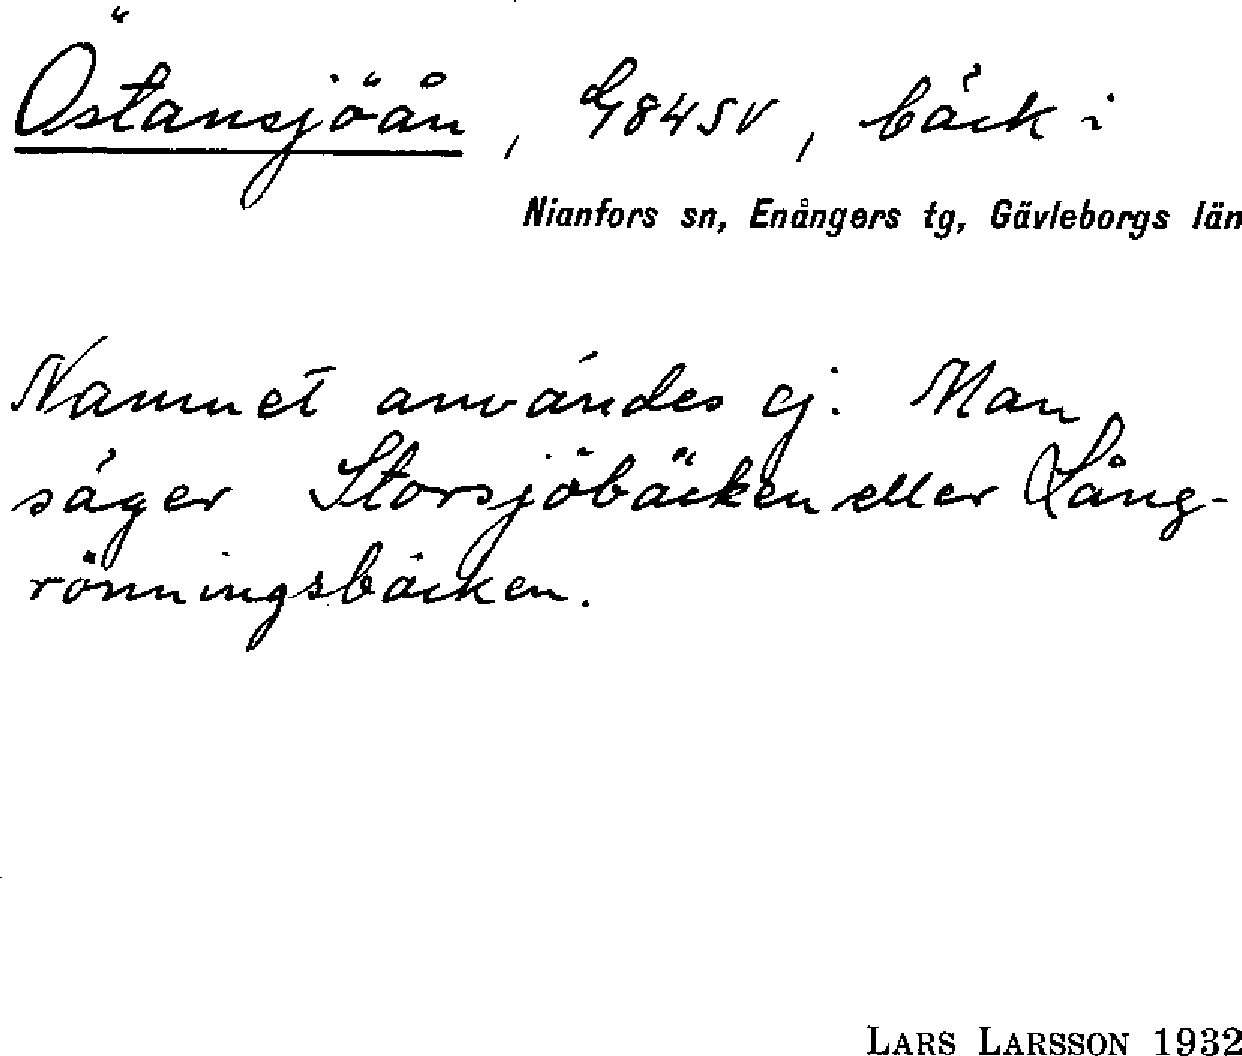 Östansjöån, G84SV, bäck i
Nianfors sn, Enångers tg, Gävleborgs län
Namnet användes ej. Man
säger Storsjöbäcken eller Lång-
rönningsbäcken.
LARS LARSSON 1932